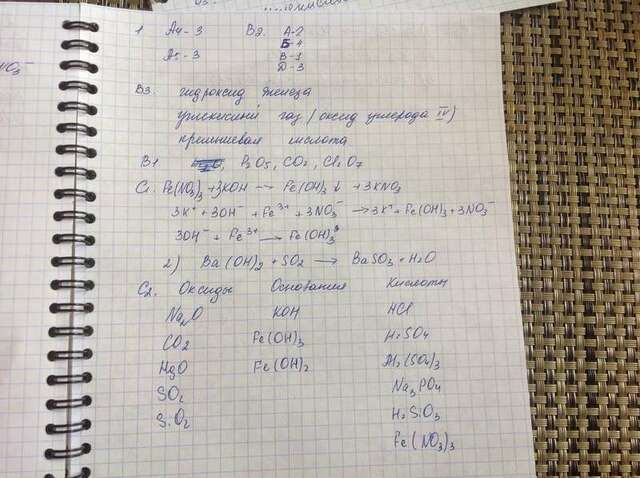 1 А4-3 В2. А-2
Б-4
А5-3 В-1
Д-3
В3 гидроксид железа
углекислый газ (оксид углерода IV)
кремниевая кислота
В1 P2O5, CO2, Cl2O7
C1. Fe(NO3)3 + 3KOH → Fe(OH)3↓ + 3KNO3
3K⁺ + 3OH⁻ + Fe³⁺ + 3NO3⁻ → 3K⁺ + Fe(OH)3 + 3NO3⁻
3OH⁻ + Fe³⁺ → Fe(OH)3
2) Ba(OH)2 + SO2 → BaSO3 + H2O
C2. Оксиды Основания Кислоты
Na2O KOH HCl
CO2 Fe(OH)3 H2SO4
HgO Fe(OH)2 Al2(SO4)3
SO2 Na3PO4
SiO2 H2SiO3
Fe(NO3)3